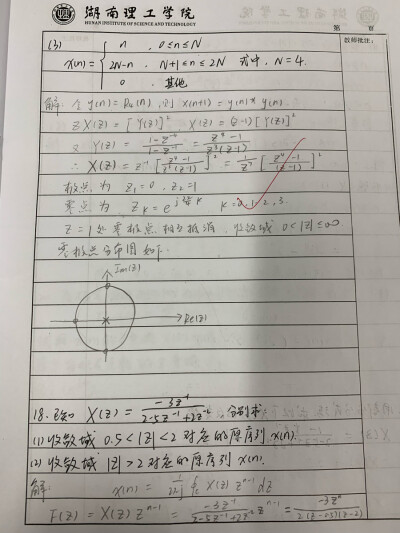 湖南理工学院
HUNAN INSTITUTE OF SCIENCE AND TECHNOLOGY
第 页
教师批注:
(3) x(n) = { n , 0≤n≤N
2N-n , N+1≤n≤2N 式中, N=4.
0 , 其他
解: 令 y(n) = R₄(n), 则 x(n+1) = y(n) * y(n).
z X(z) = [Y(z)]² X(z) = z⁻¹ [Y(z)]²
又 Y(z) = (1-z⁻⁴)/(1-z⁻¹) = (z⁴-1)/(z³(z-1))
∴ X(z) = z⁻¹ [(z⁴-1)/(z³(z-1))]² = 1/z⁷ [(z⁴-1)/(z-1)]²
极点为 z₁=0, z₂=1
零点为 z_k = e^{j(2π/4)k} k=0,1,2,3.
z=1处零极点相互抵消, 收敛域 0<|z|≤∞
零极点分布图如下:
Im(z)
Re(z)
18. 已知 X(z) = -3z⁻¹/(2-5z⁻¹+2z⁻²), 分别求
(1) 收敛域 0.5<|z|<2 对应的原序列 x(n).
(2) 收敛域 |z|>2 对应的原序列 x(n).
解: x(n) = 1/(2πj) ∮c X(z) z^{n-1} dz
F(z) = X(z) z^{n-1} = -3z⁻¹/(2-5z⁻¹+2z⁻²) z^{n-1} = -3zⁿ/(2(z-0.5)(z-2))